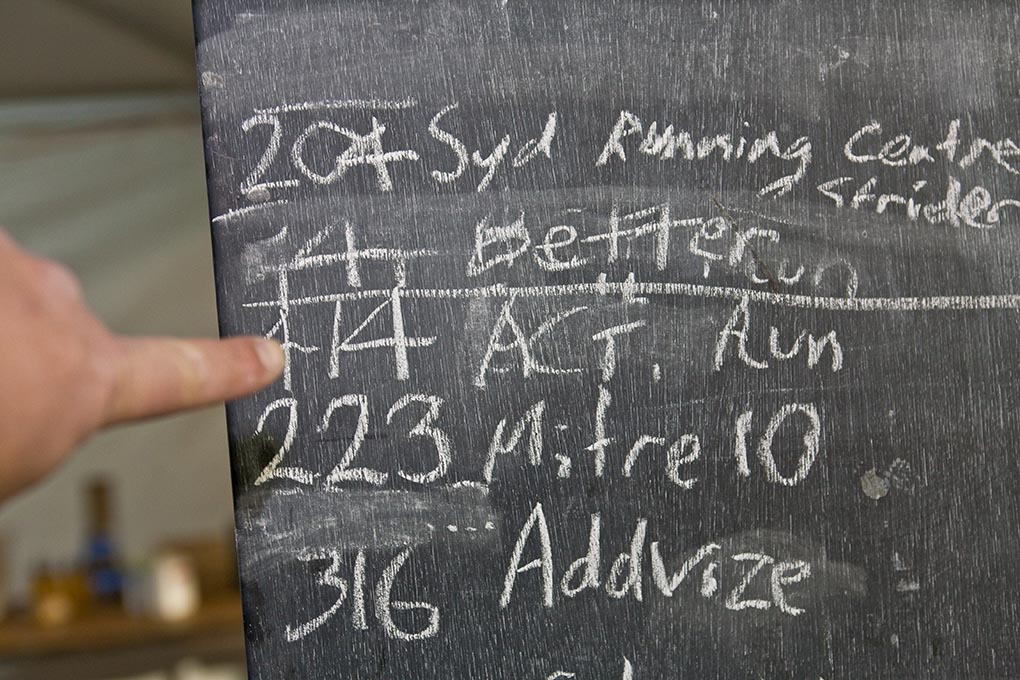 204 Syd Running Centre
Strider
14 Better Run
114 ACT. Run
223 Mitre 10
316 Addvize